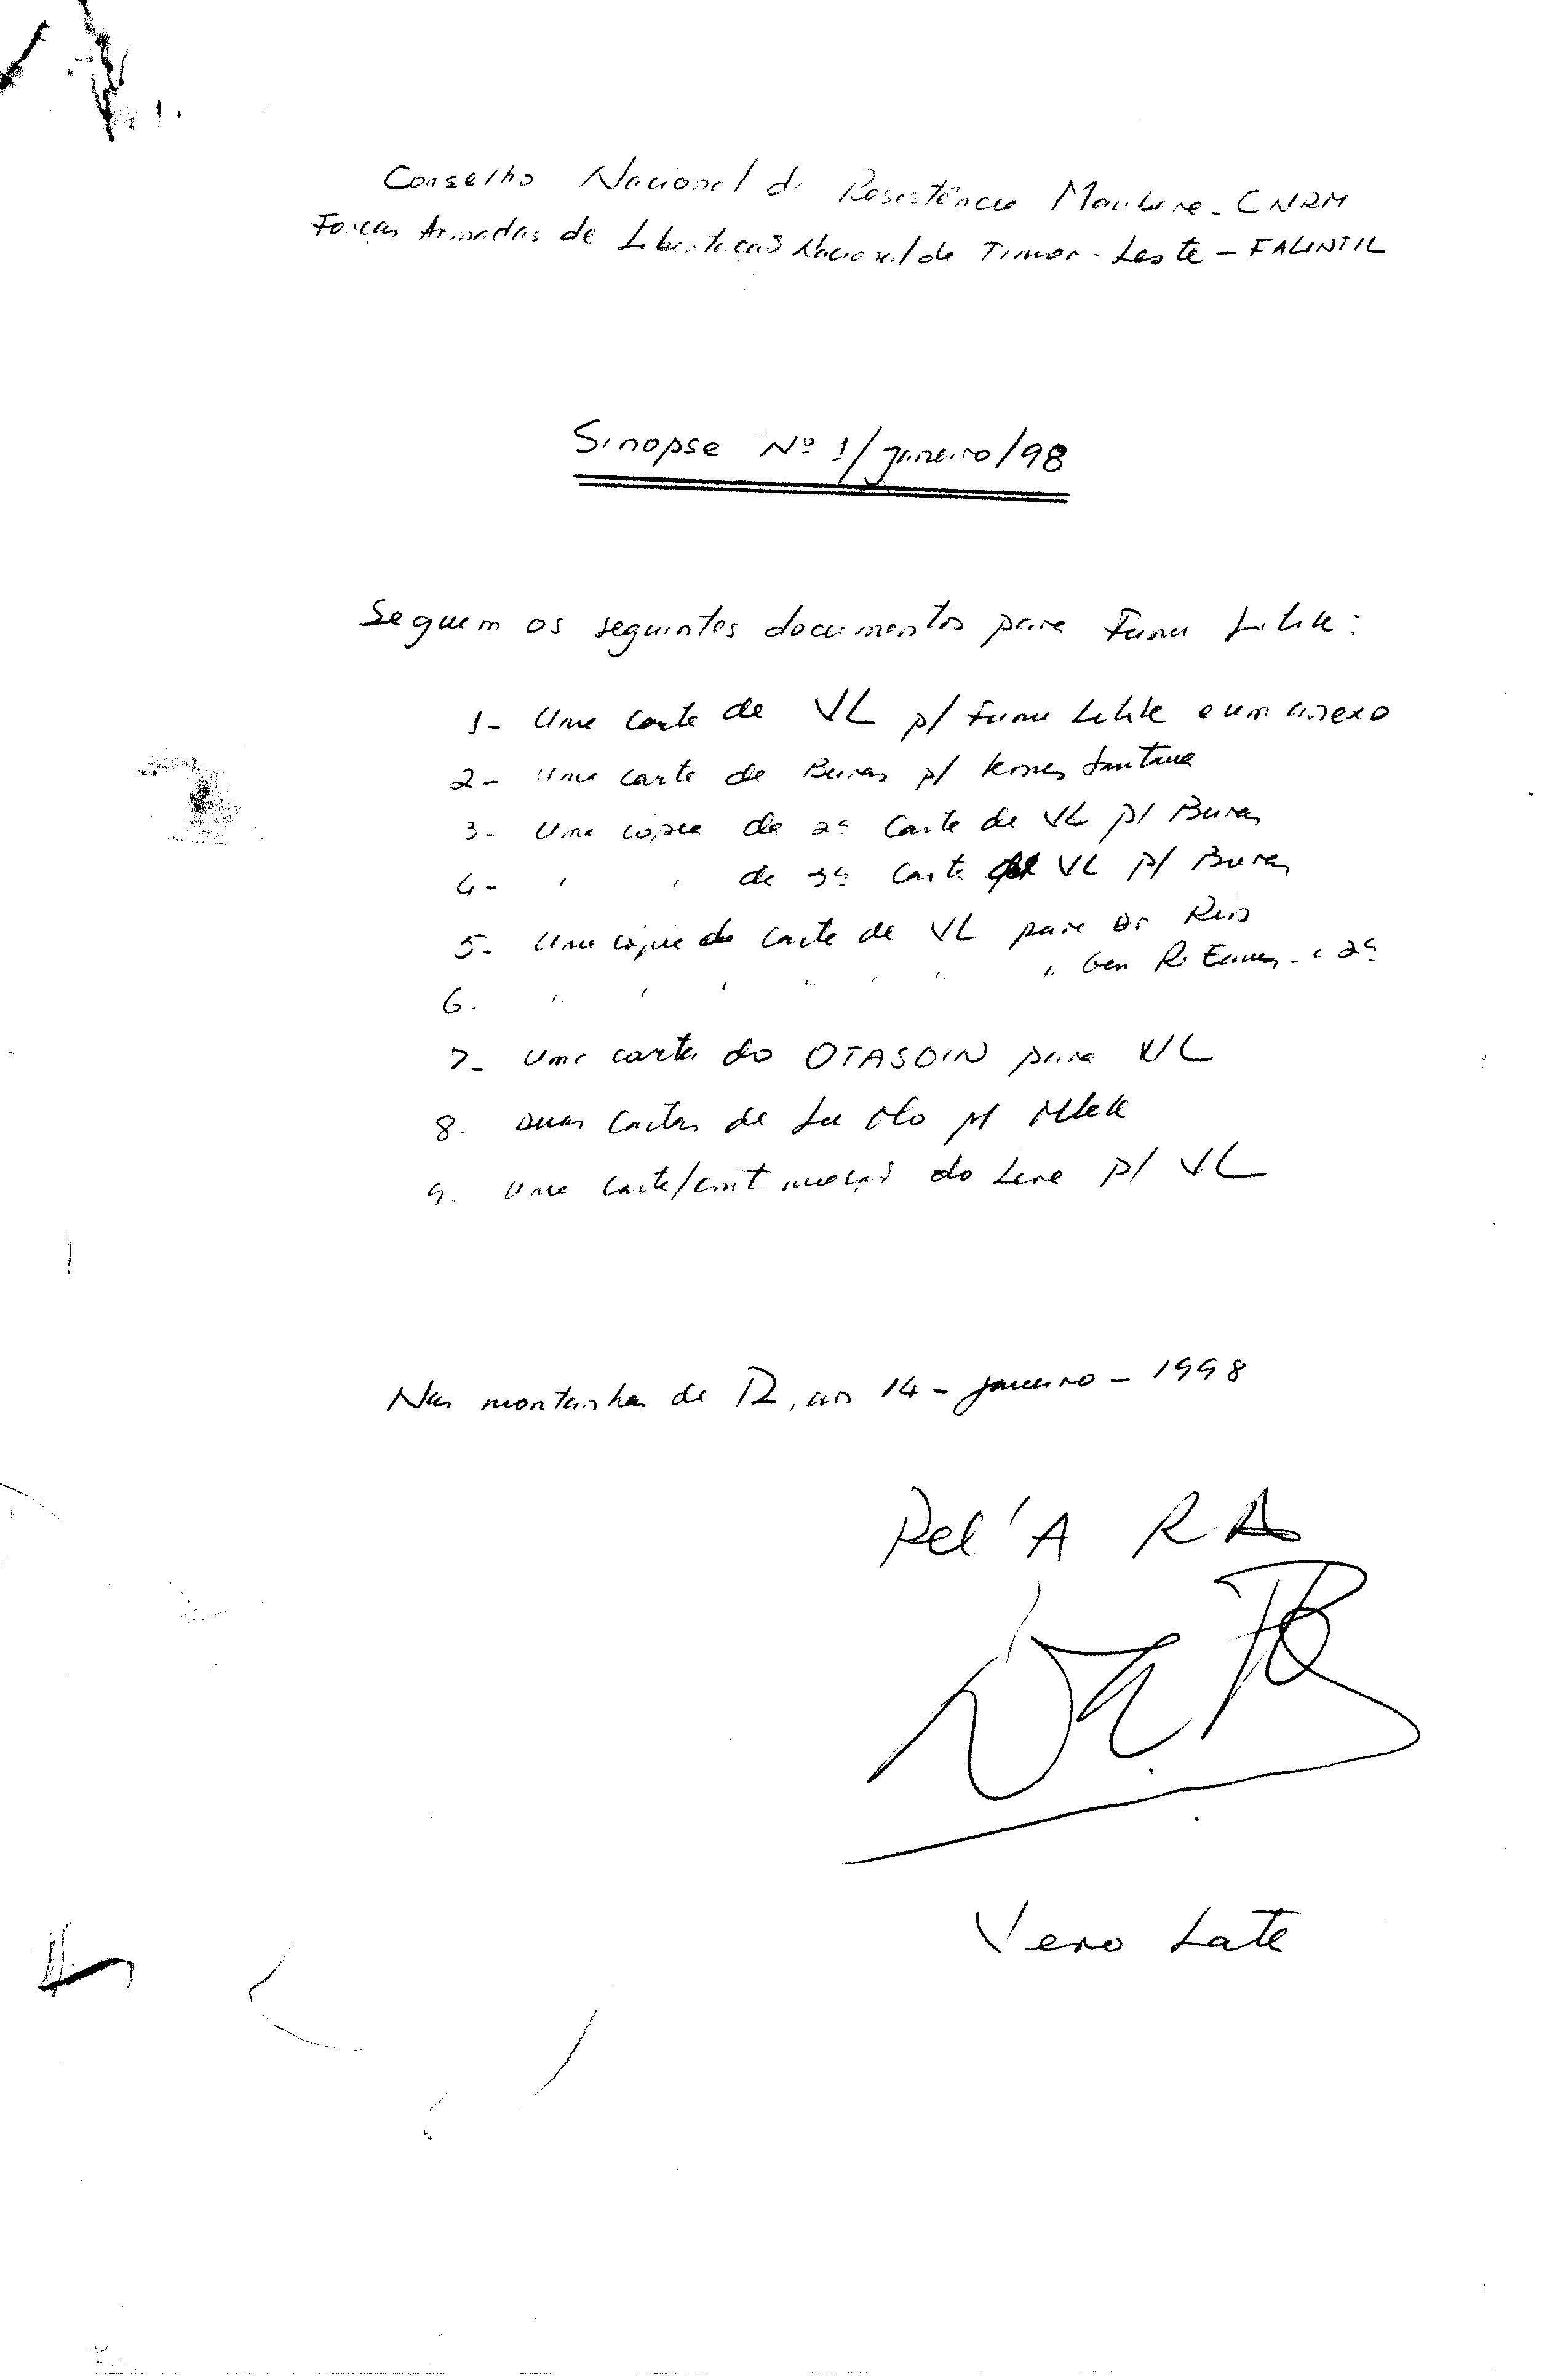 Conselho Nacional da Resistência Maubere - CNRM
Forças Armadas de Libertação Nacional de Timor-Leste - FALINTIL
Sinopse Nº 1/janeiro/98
Seguem os seguintes documentos para
1- Uma carta de VL p/ e um anexo
2- Uma carta de p/ Santana
3- Uma cópia da 2ª carta de VL p/
4- " " da 3ª carta de VL p/
5- Uma cópia da carta de VL para Dr Reis
6. " " " " " " " Gen R. Eanes
7- Uma carta do OTASOIN para VL
8. Duas cartas de p/
9. Uma carta/continuação do Lere p/ VL
Nas montanhas de, aos 14 - janeiro - 1998
Pel'A
Vero Late